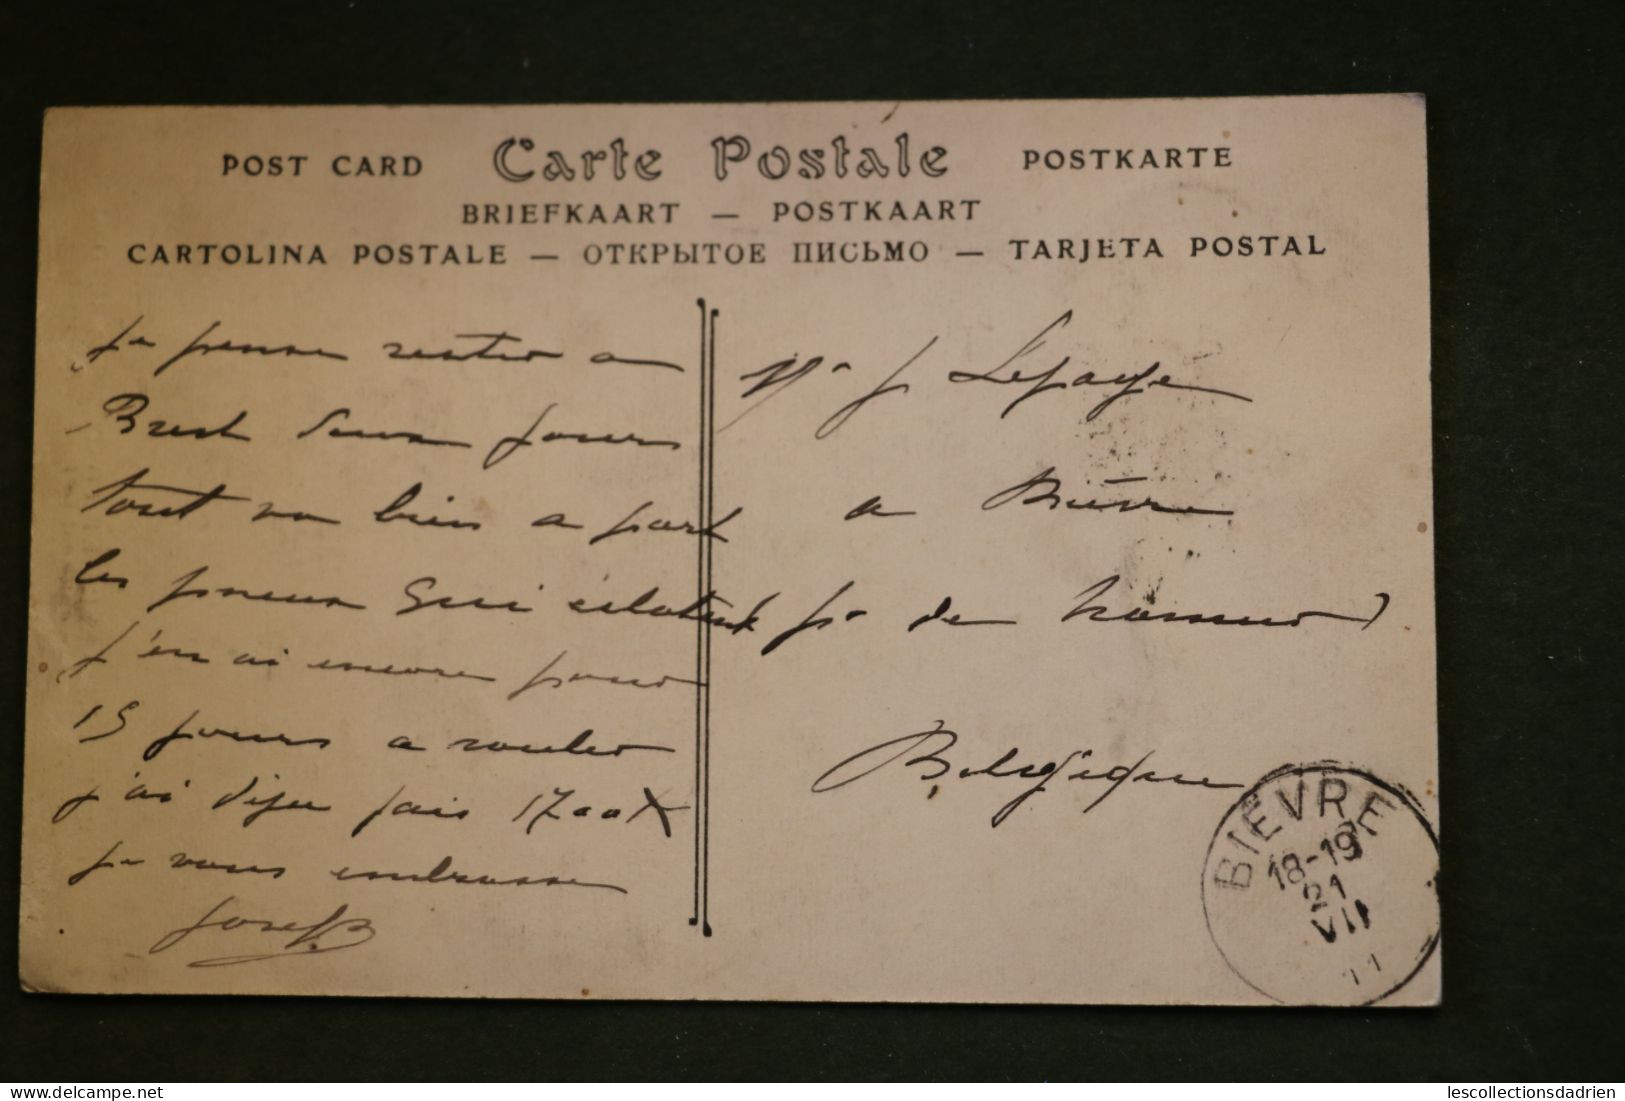 POST CARD Carte Postale POSTKARTE
BRIEFKAART — POSTKAART
CARTOLINA POSTALE — ОТКРЫТОЕ ПИСЬМО — TARJETA POSTAL
je pense rester a
Brest deux jours
tout va bien a part
les pneux qui éclatent
j'en ai encore pour
15 jours a rouler
j'ai deja fais 1700 K
je vous embrasse
Joseph
Mr J Lepage
a Bièvre
pr de Namur
Belgique
BIEVRE
18-19
21
VII
11
lescollectionsdadrien